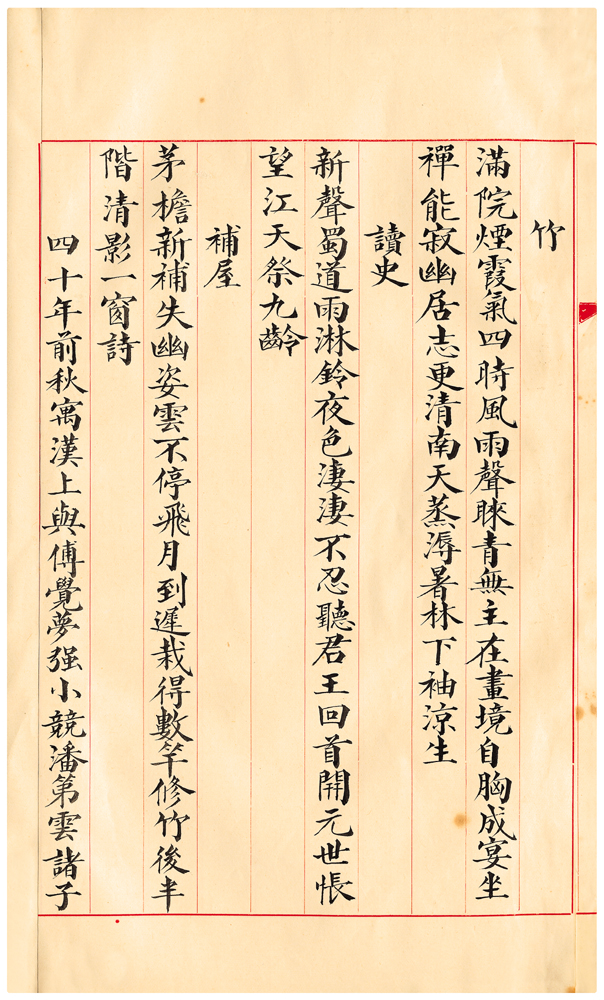 竹
滿院煙霞氣四時風雨聲睞青無主在畫境自胸成宴坐
禪能寂幽居志更清南天蒸溽暑林下袖涼生
讀史
新聲蜀道雨淋鈴夜色淒淒不忍聽君王回首開元世悵
望江天祭九齡
補屋
茅檐新補失幽姿雲不停飛月到遲栽得數竿修竹後半
階清影一窗詩
四十年前秋寓漢上與傅覺夢强小競潘第雲諸子